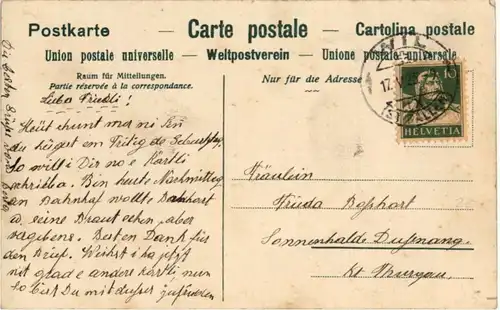 Postkarte — Carte postale — Cartolina postale
Union postale universelle — Weltpostverein — Unione postale universale
Raum für Mitteilungen.
Partie réservée à la correspondance.
Nur für die Adresse
WIL
17.
(ST. GALLEN)
10
HELVETIA
Liba Friedi!
Heüt chunt mer ni
du häsert em Fritig de Geburtstag,
so willi Dir no e Kärtli
schriba. Bin heute Nachmittag
am Bahnhof
a, seine Braut aber
vergebens. Besten Dank für
den Brief. Weischt i ha jetzt
nit grad e andere Kärtli, nun
so bist Du mit zufrieden
Fräulein
Frieda Boßhart
Sonnenhalde Dußnang
Kt Thurgau